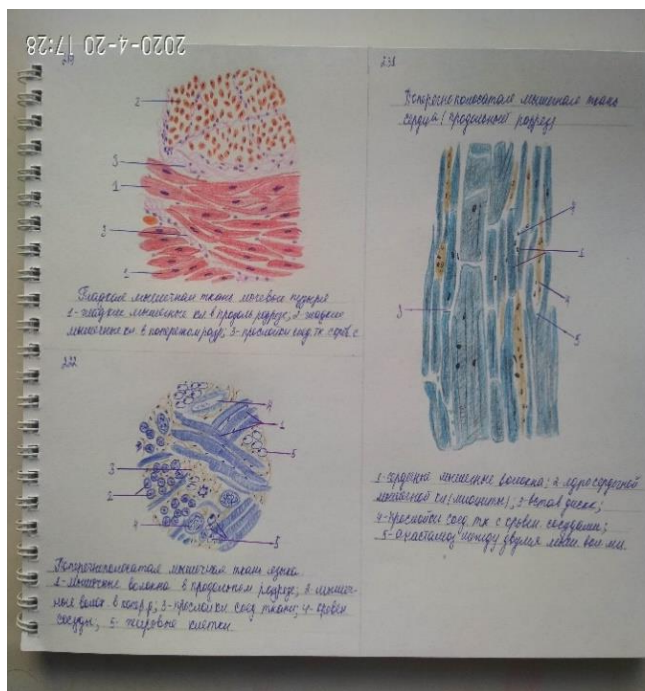 2020-4-20 17:28
2
3
1
3
1
Гладкая мышечная ткань мочевого пузыря
1-гладкие мышечные кл. в продол. разрезе; 2-гладкие
мышечные кл. в поперечном разр.; 3-прослойки соед. тк. с
232
4
1
5
3
2
4
5
Поперечнополосатая мышечная ткань языка.
1-мышечные волокна в продольном разрезе; 2 мышеч-
ные волок. в попер.р; 3-прослойки соед. ткани; 4-кровен
сосуды; 5-жировые клетки
238
Поперечнополосатая мышечная ткань
сердца (продольный разрез)
2
1
3
4
5
1-сердечные мышечные волокна; 2-ядро сердечной
мышечной кл (миоциты); 3-встав диски;
4-прослойки соед. тк с кровен. сосудами;
5-анастамоз между двумя мышеч. вол-ми.